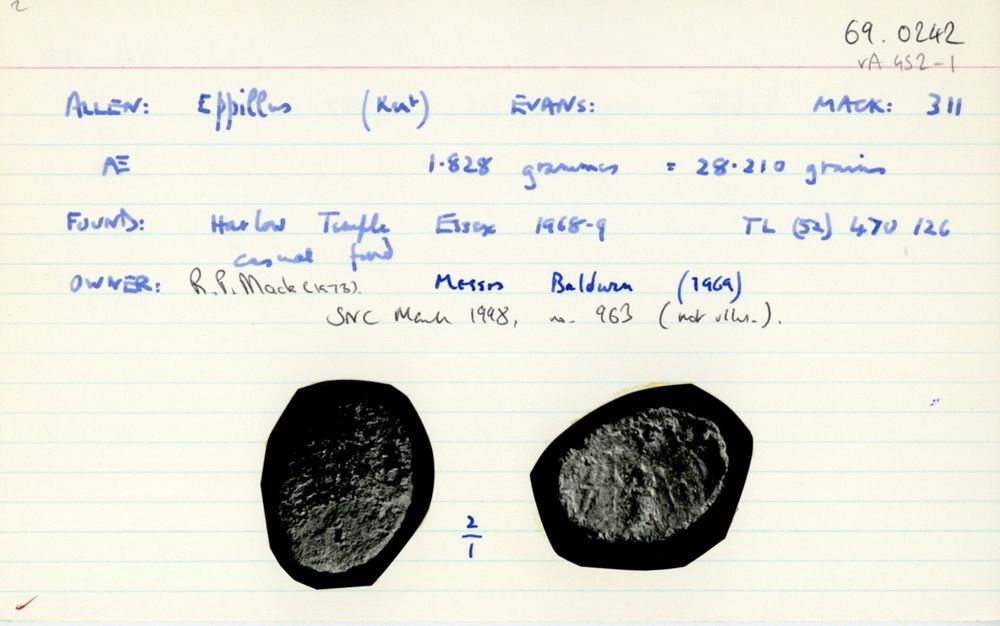 69.0242
VA 452-1
ALLEN: Eppillus (Kent) EVANS: MACK: 311
AE 1.828 grammes = 28.210 grains
FOUND: Harlow Temple Essex 1968-9 TL (52) 470 126
casual find
OWNER: R.P. Mack (1973). Messrs Baldwin (1969)
SNC March 1998, no. 963 (not illus.).
2
1